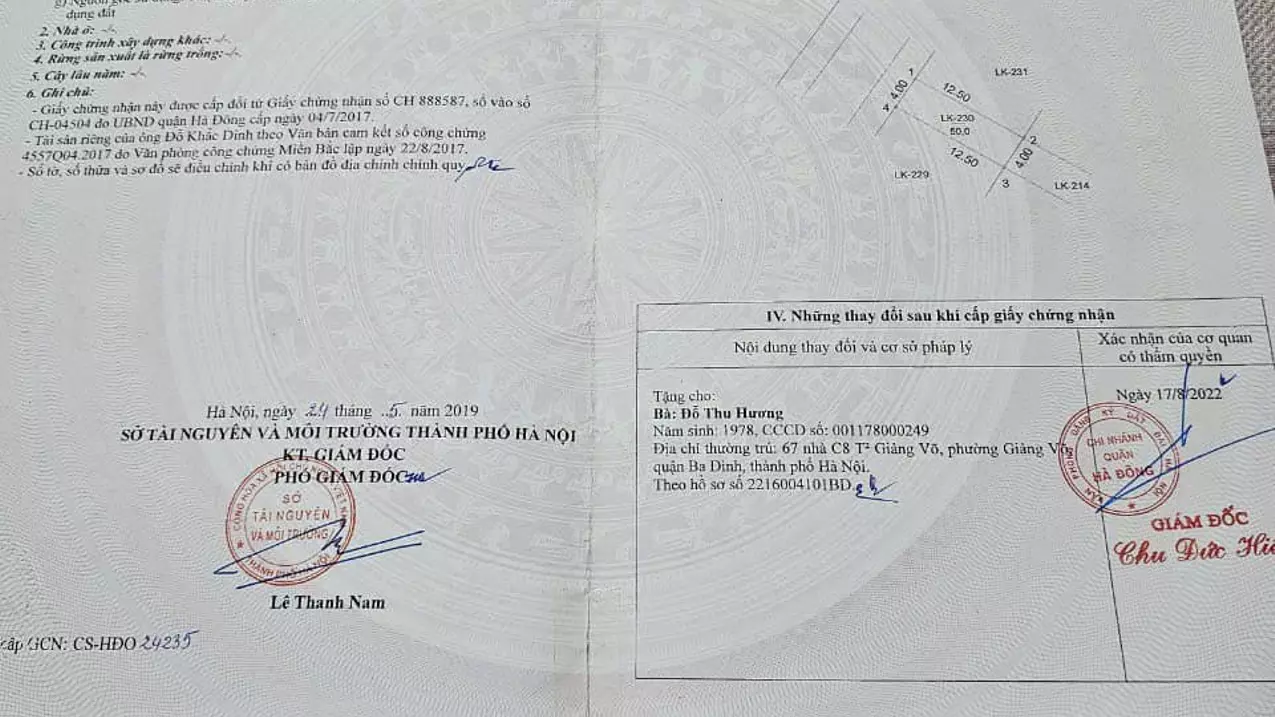 g) Nguồn gốc sử dụng
dụng đất
2. Nhà ở: -/-
3. Công trình xây dựng khác: -/-
4. Rừng sản xuất là rừng trồng: -/-
5. Cây lâu năm: -/-
6. Ghi chú:
- Giấy chứng nhận này được cấp đổi từ Giấy chứng nhận số CH 888587, số vào sổ
CH-04504 do UBND quận Hà Đông cấp ngày 04/7/2017.
- Tài sản riêng của ông Đỗ Khắc Dinh theo Văn bản cam kết số công chứng
4557Q04.2017 do Văn phòng công chứng Miền Bắc lập ngày 22/8/2017.
- Số tờ, số thửa và sơ đồ sẽ điều chỉnh khi có bản đồ địa chính chính quy
Hà Nội, ngày 24 tháng .5. năm 2019
SỞ TÀI NGUYÊN VÀ MÔI TRƯỜNG THÀNH PHỐ HÀ NỘI
KT. GIÁM ĐỐC
PHÓ GIÁM ĐỐC
CỘNG HÒA XÃ HỘI CHỦ NGHĨA VIỆT NAM
SỞ
TÀI NGUYÊN
VÀ MÔI TRƯỜNG
THÀNH PHỐ HÀ NỘI
Lê Thanh Nam
cấp GCN: CS-HĐO 24235
LK-231
1
4.00
12.50
4
LK-230
50,0
2
12.50
4.00
LK-229
3
LK-214
IV. Những thay đổi sau khi cấp giấy chứng nhận
Nội dung thay đổi và cơ sở pháp lý
Xác nhận của cơ quan
có thẩm quyền
Tặng cho:
Bà: Đỗ Thu Hương
Năm sinh: 1978, CCCD số: 001178000249
Địa chỉ thường trú: 67 nhà C8 T² Giảng Võ, phường Giảng Võ
quận Ba Đình, thành phố Hà Nội.
Theo hồ sơ số 2216004101BD
Ngày 17/8/2022
VĂN PHÒNG ĐĂNG KÝ ĐẤT ĐAI HÀ NỘI
CHI NHÁNH
QUẬN
HÀ ĐÔNG
GIÁM ĐỐC
Chu Đức